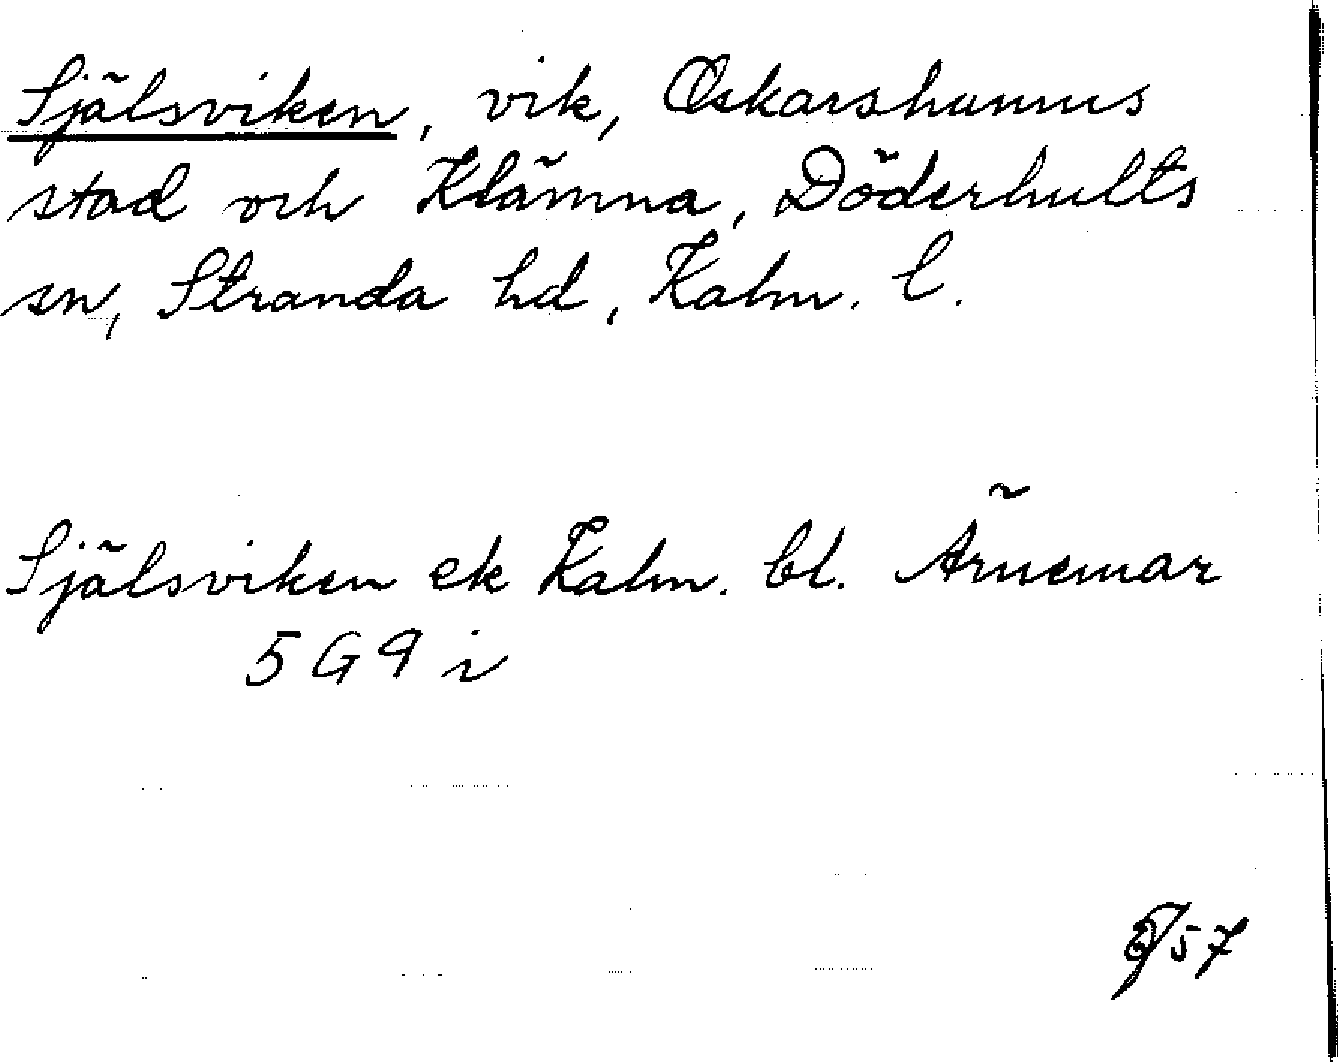 Själsviken, vik, Oskarshamns
stad och Klämna, Döderhults
sn, Stranda hd, Kalm. l.
Själsviken ek Kalm. bl. Ärnemar
5 G 9 i
57